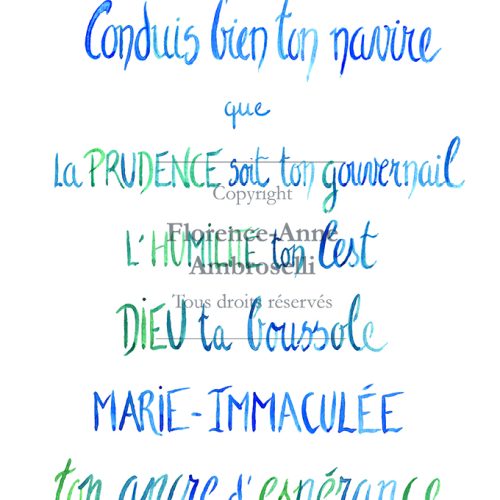 Conduis bien ton navire
que
La PRUDENCE soit ton gouvernail
Copyright
L'HUMILITÉ ton lest
Florence-Anne
Ambroselli
DIEU ta boussole
Tous droits réservés
MARIE-IMMACULÉE
ton ancre d'espérance